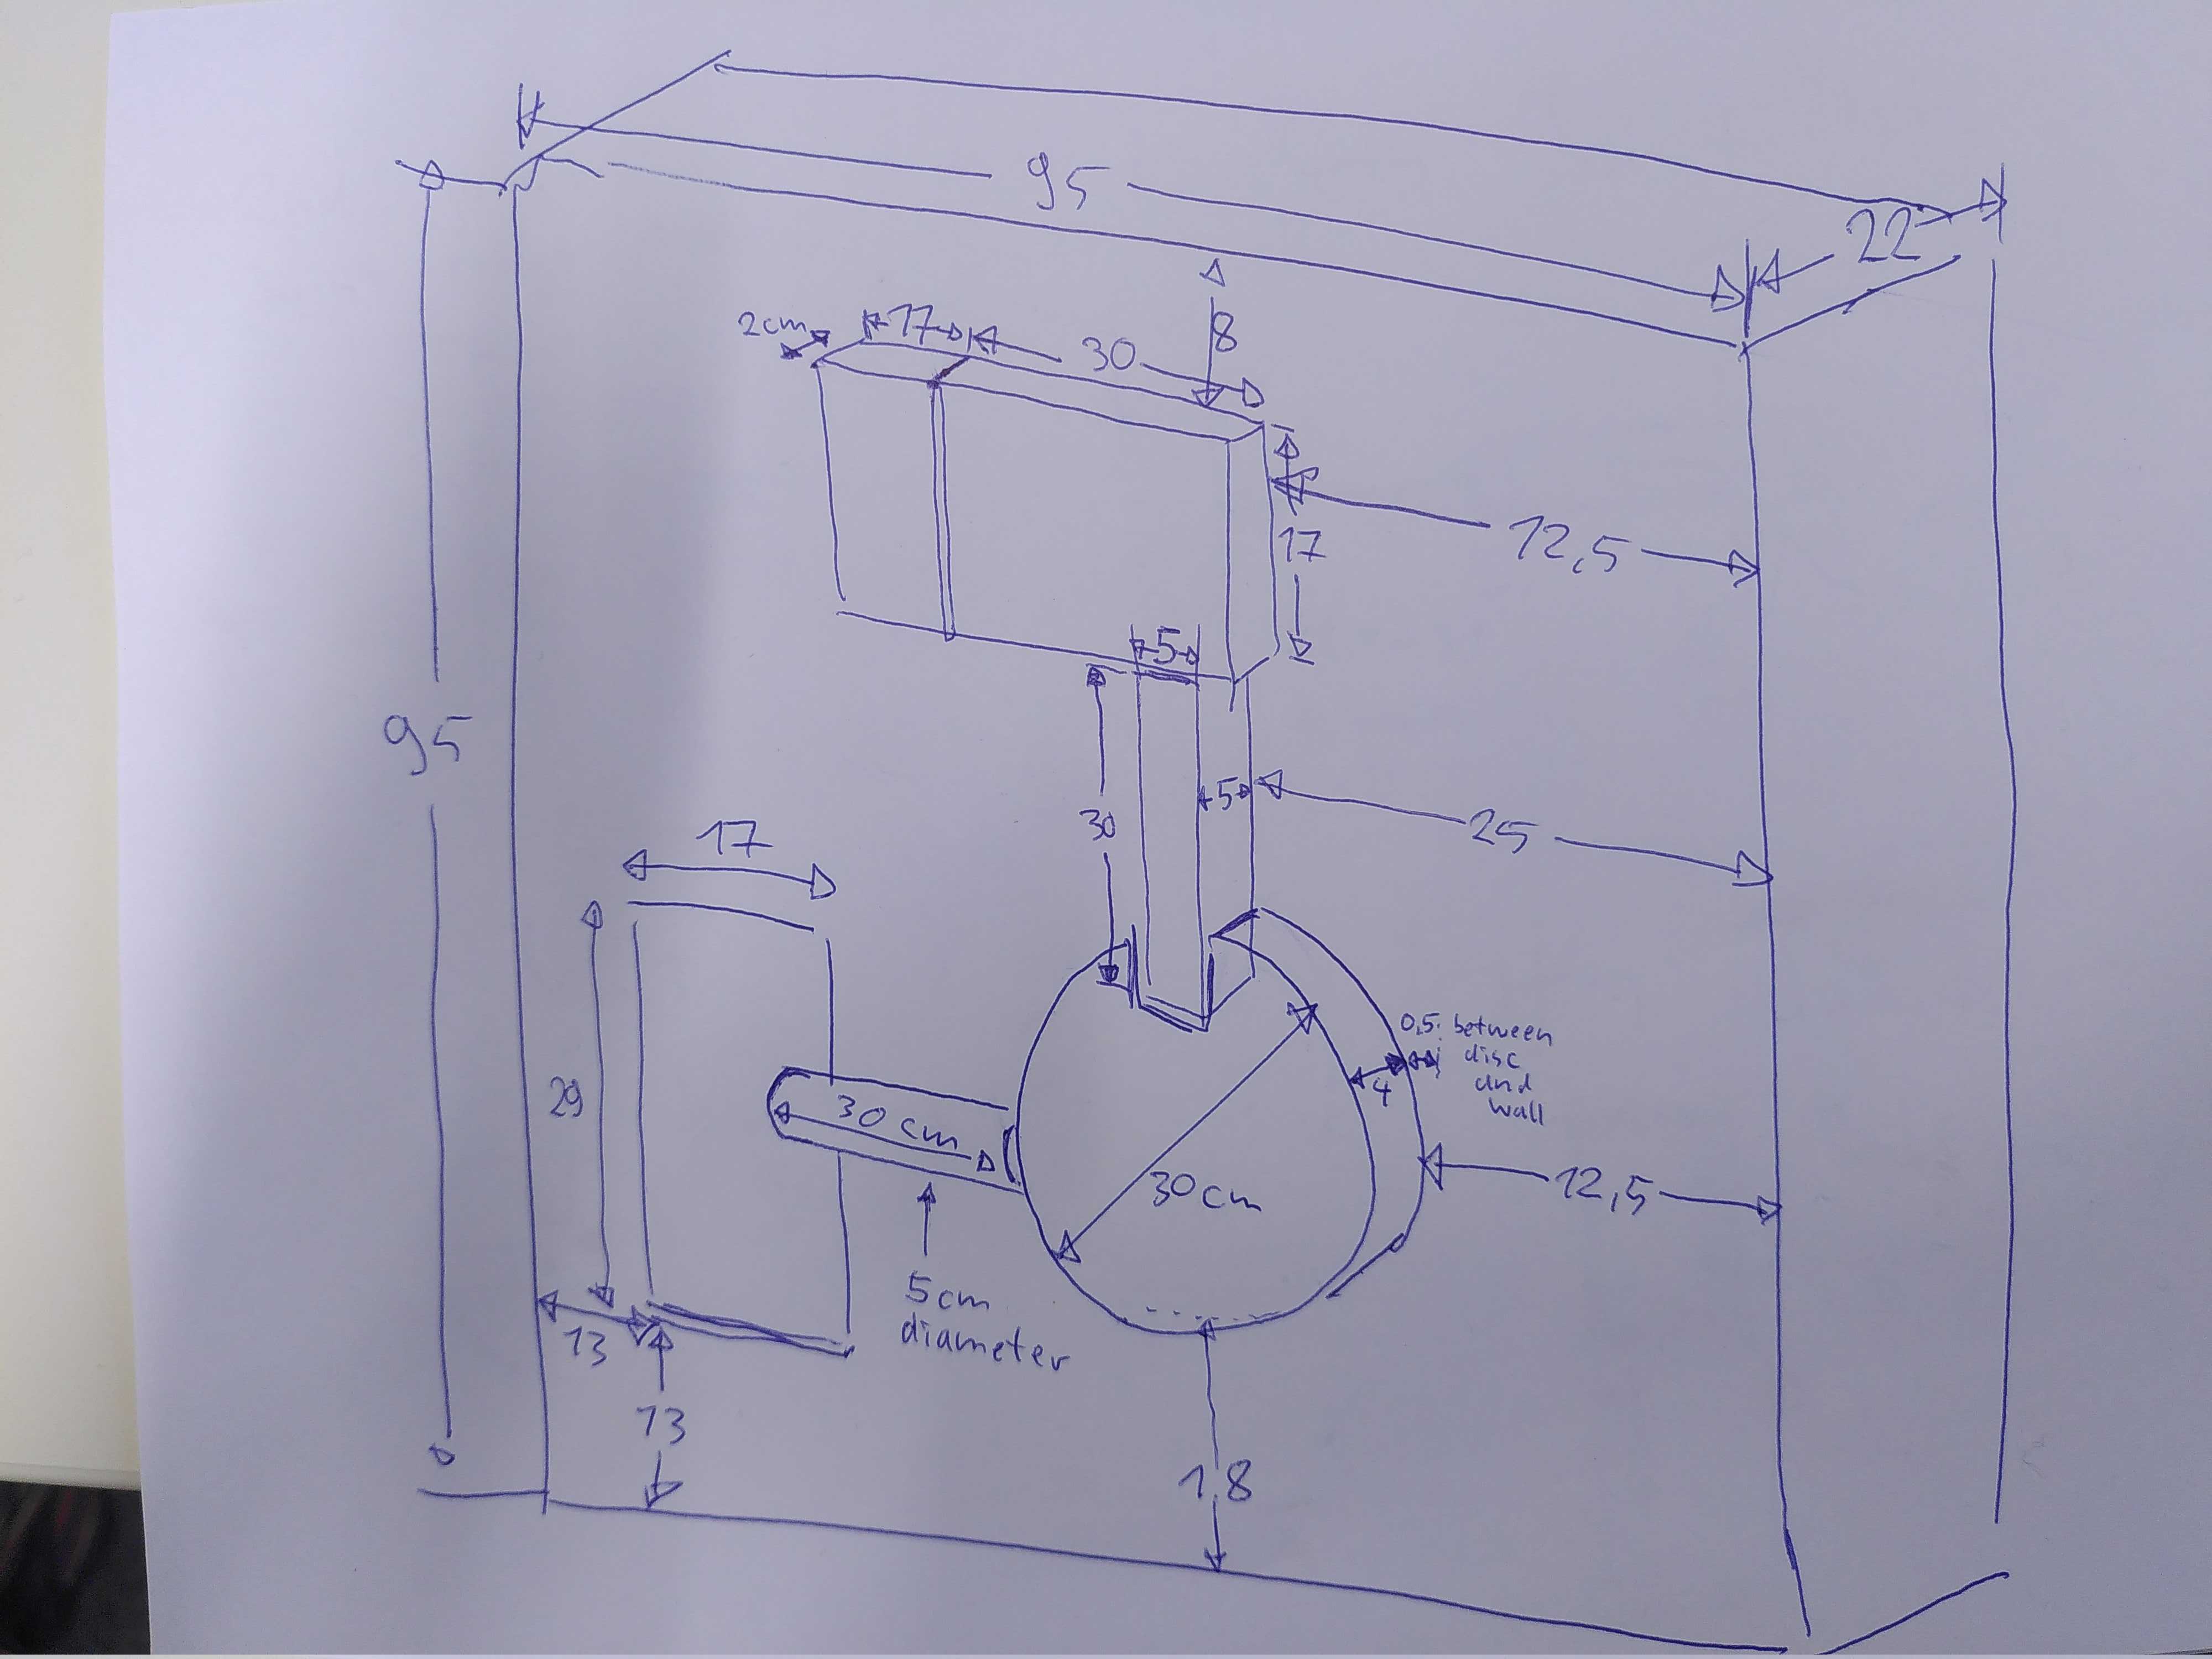 95
22
8
2cm
17
30
17
12,5
5
95
30
5
25
17
0,5 between
disc
and
wall
4
29
30 cm
12,5
30cm
5cm
diameter
13
13
1,8